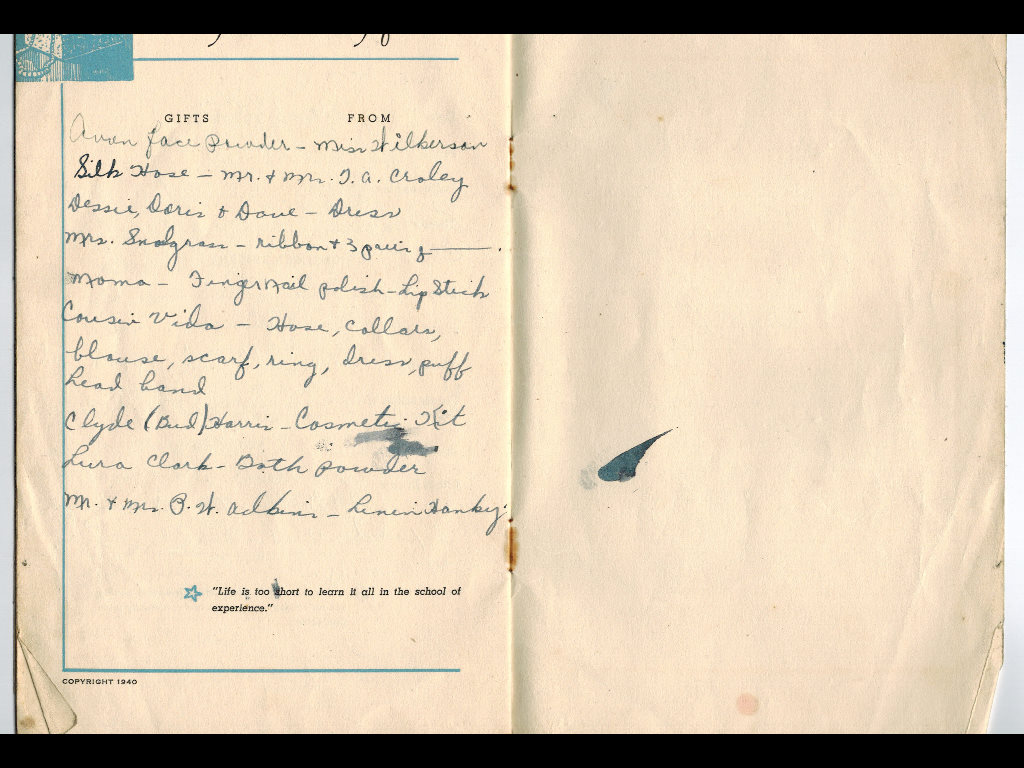 GIFTS FROM
Avon face powder - Miss Wilkerson
Silk Hose - Mr. & Mrs. T. A. Croley
Dessie, Doris & Dave - Dress
Mrs. Snodgrass - ribbon & 3
Moma - Finger Nail polish - Lip Stick
Cousin Vida - Hose, collars,
blouse, scarf, ring, dress, puff
head band
Clyde (Bud) Harris - Cosmetic Kit
Lura Clark - Bath powder
Mr. & Mrs. P. H. Adkins - Linen Hanky.
"Life is too short to learn it all in the school of
experience."
COPYRIGHT 1940